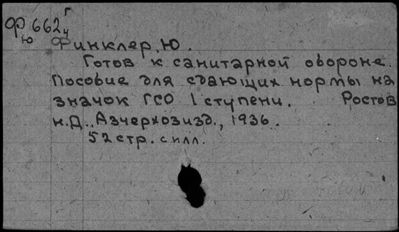 Ф 662 г
ю ч
Финклер, Ю.
Готов к санитарной обороне.
Пособие для сдающих нормы на
значок ГСО 1 ступени. Ростов
н.Д., Азчерхозизд., 1936.
52 стр. с илл.